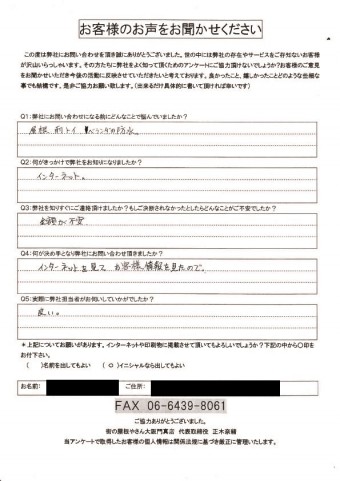 お客様のお声をお聞かせください
この度は弊社にお問い合わせを頂き誠にありがとうございました。世の中には弊社の存在やサービスをご存知ないお客様
が沢山いらっしゃいます。その方たちに弊社をよく知って頂くためのアンケートにご協力頂けないでしょうか?お客様のご意見
をお聞かせいただき今後の活動に反映させていただきたいと考えております。良かったこと、嬉しかったことどのような些細な
事でも結構です。是非ご協力お願い致します。(出来るだけ具体的に書いて頂ければ幸いです)
Q1:弊社にお問い合わせになる前にどんなことで悩んでいましたか?
屋根 雨トイ ベランダの防水。
Q2:何がきっかけで弊社をお知りになりましたか?
インターネット。
Q3:弊社を知りすぐにご連絡頂けましたか?もしご決断されなかったとしたらどんなことがご不安でしたか?
金額が不安
Q4:何が決め手となり弊社にお問い合わせ頂きましたか?
インターネットを見て お客様情報を見たので。
Q5:実際に弊社担当者がお伺いしていかがでしたか?
良い。
*上記についてお願いがあります。インターネットや印刷物に掲載させて頂いてもよろしいでしょうか?下記の中から〇印を
お付下さい。
( )名前を出してもよい ( 〇 )イニシャルなら出してもよい
お名前: ご住所:
FAX 06-6439-8061
ご協力ありがとうございました。
街の屋根やさん大阪門真店 代表取締役 正木奈緒
当アンケートで取得したお客様の個人情報は関係法規に基づき厳正に管理いたします。